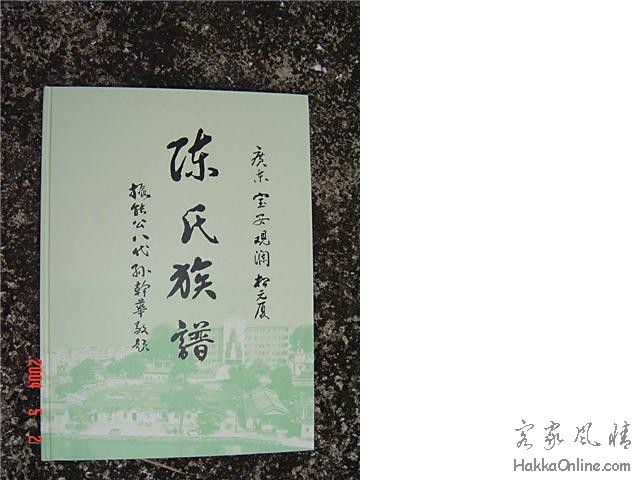 廣东 宝安观澜 松元厦
陈氏族譜
振能公八代孙幹華敬题
2004 5 2
客家风情
HakkaOnline.com